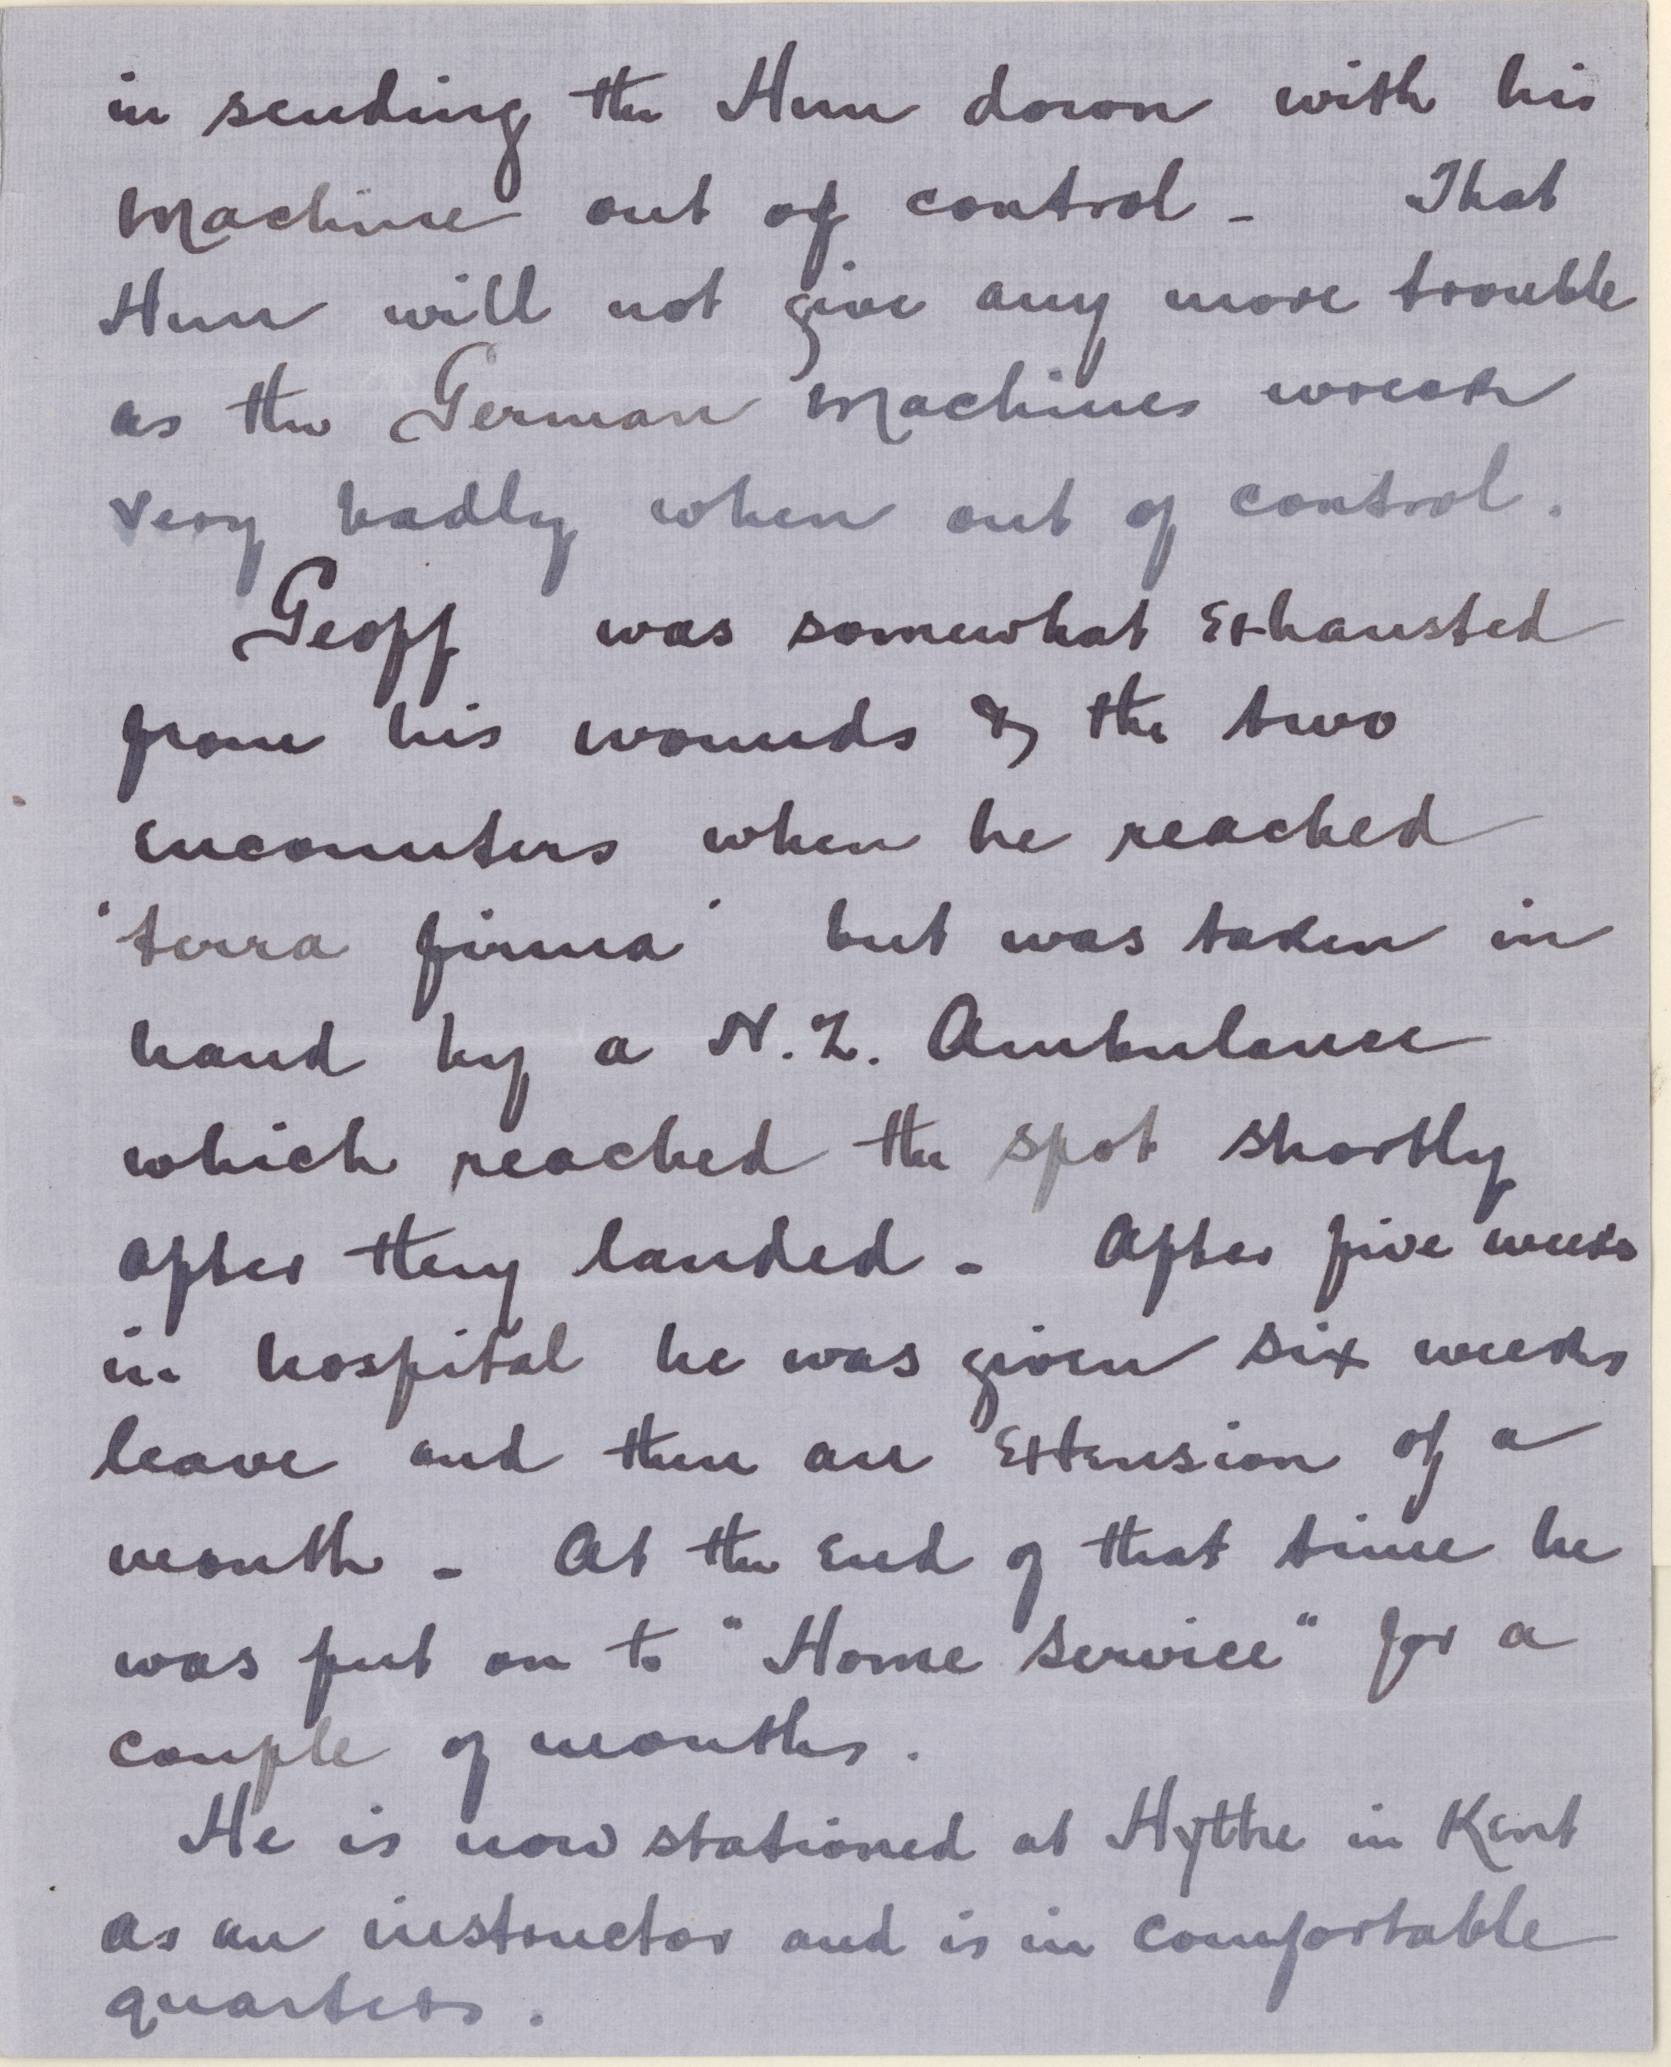 in sending the Hun down with his
Machine out of control - That
Hun will not give any more trouble
as the German Machines wreck
very badly when out of control.
Geoff was somewhat exhausted
from his wounds & the two
encounters when he reached
'terra firma' but was taken in
hand by a N.Z. Ambulance
which reached the spot shortly
after they landed - After five weeks
in hospital he was given six weeks
leave and then an extension of a
month - At the end of that time he
was put on to "Home Service" for a
couple of months.
He is now stationed at Hythe in Kent
as an instructor and is in comfortable
quarters.